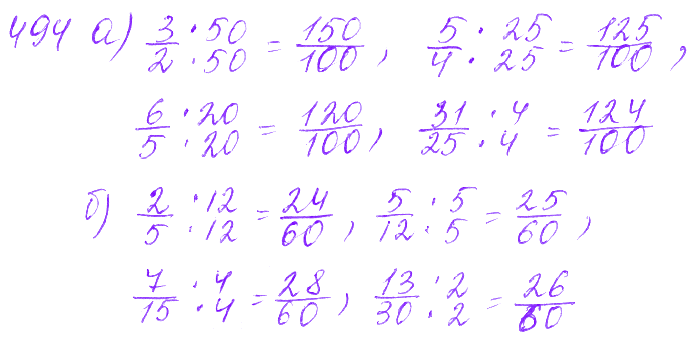 494 а) 3/2 · 50/50 = 150/100, 5/4 · 25/25 = 125/100,
6/5 · 20/20 = 120/100, 31/25 · 4/4 = 124/100
б) 2/5 · 12/12 = 24/60, 5/12 · 5/5 = 25/60,
7/15 · 4/4 = 28/60, 13/30 · 2/2 = 26/60